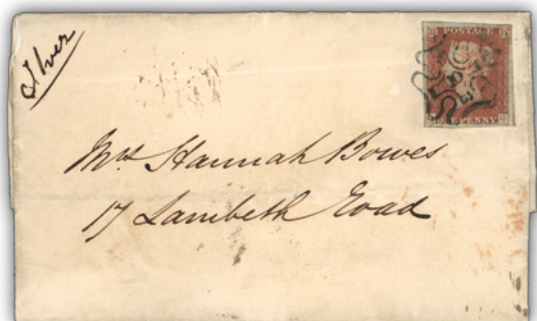 POSTAGE
ONE PENNY
Mrs Hannah Bowes
17 Lambeth Road